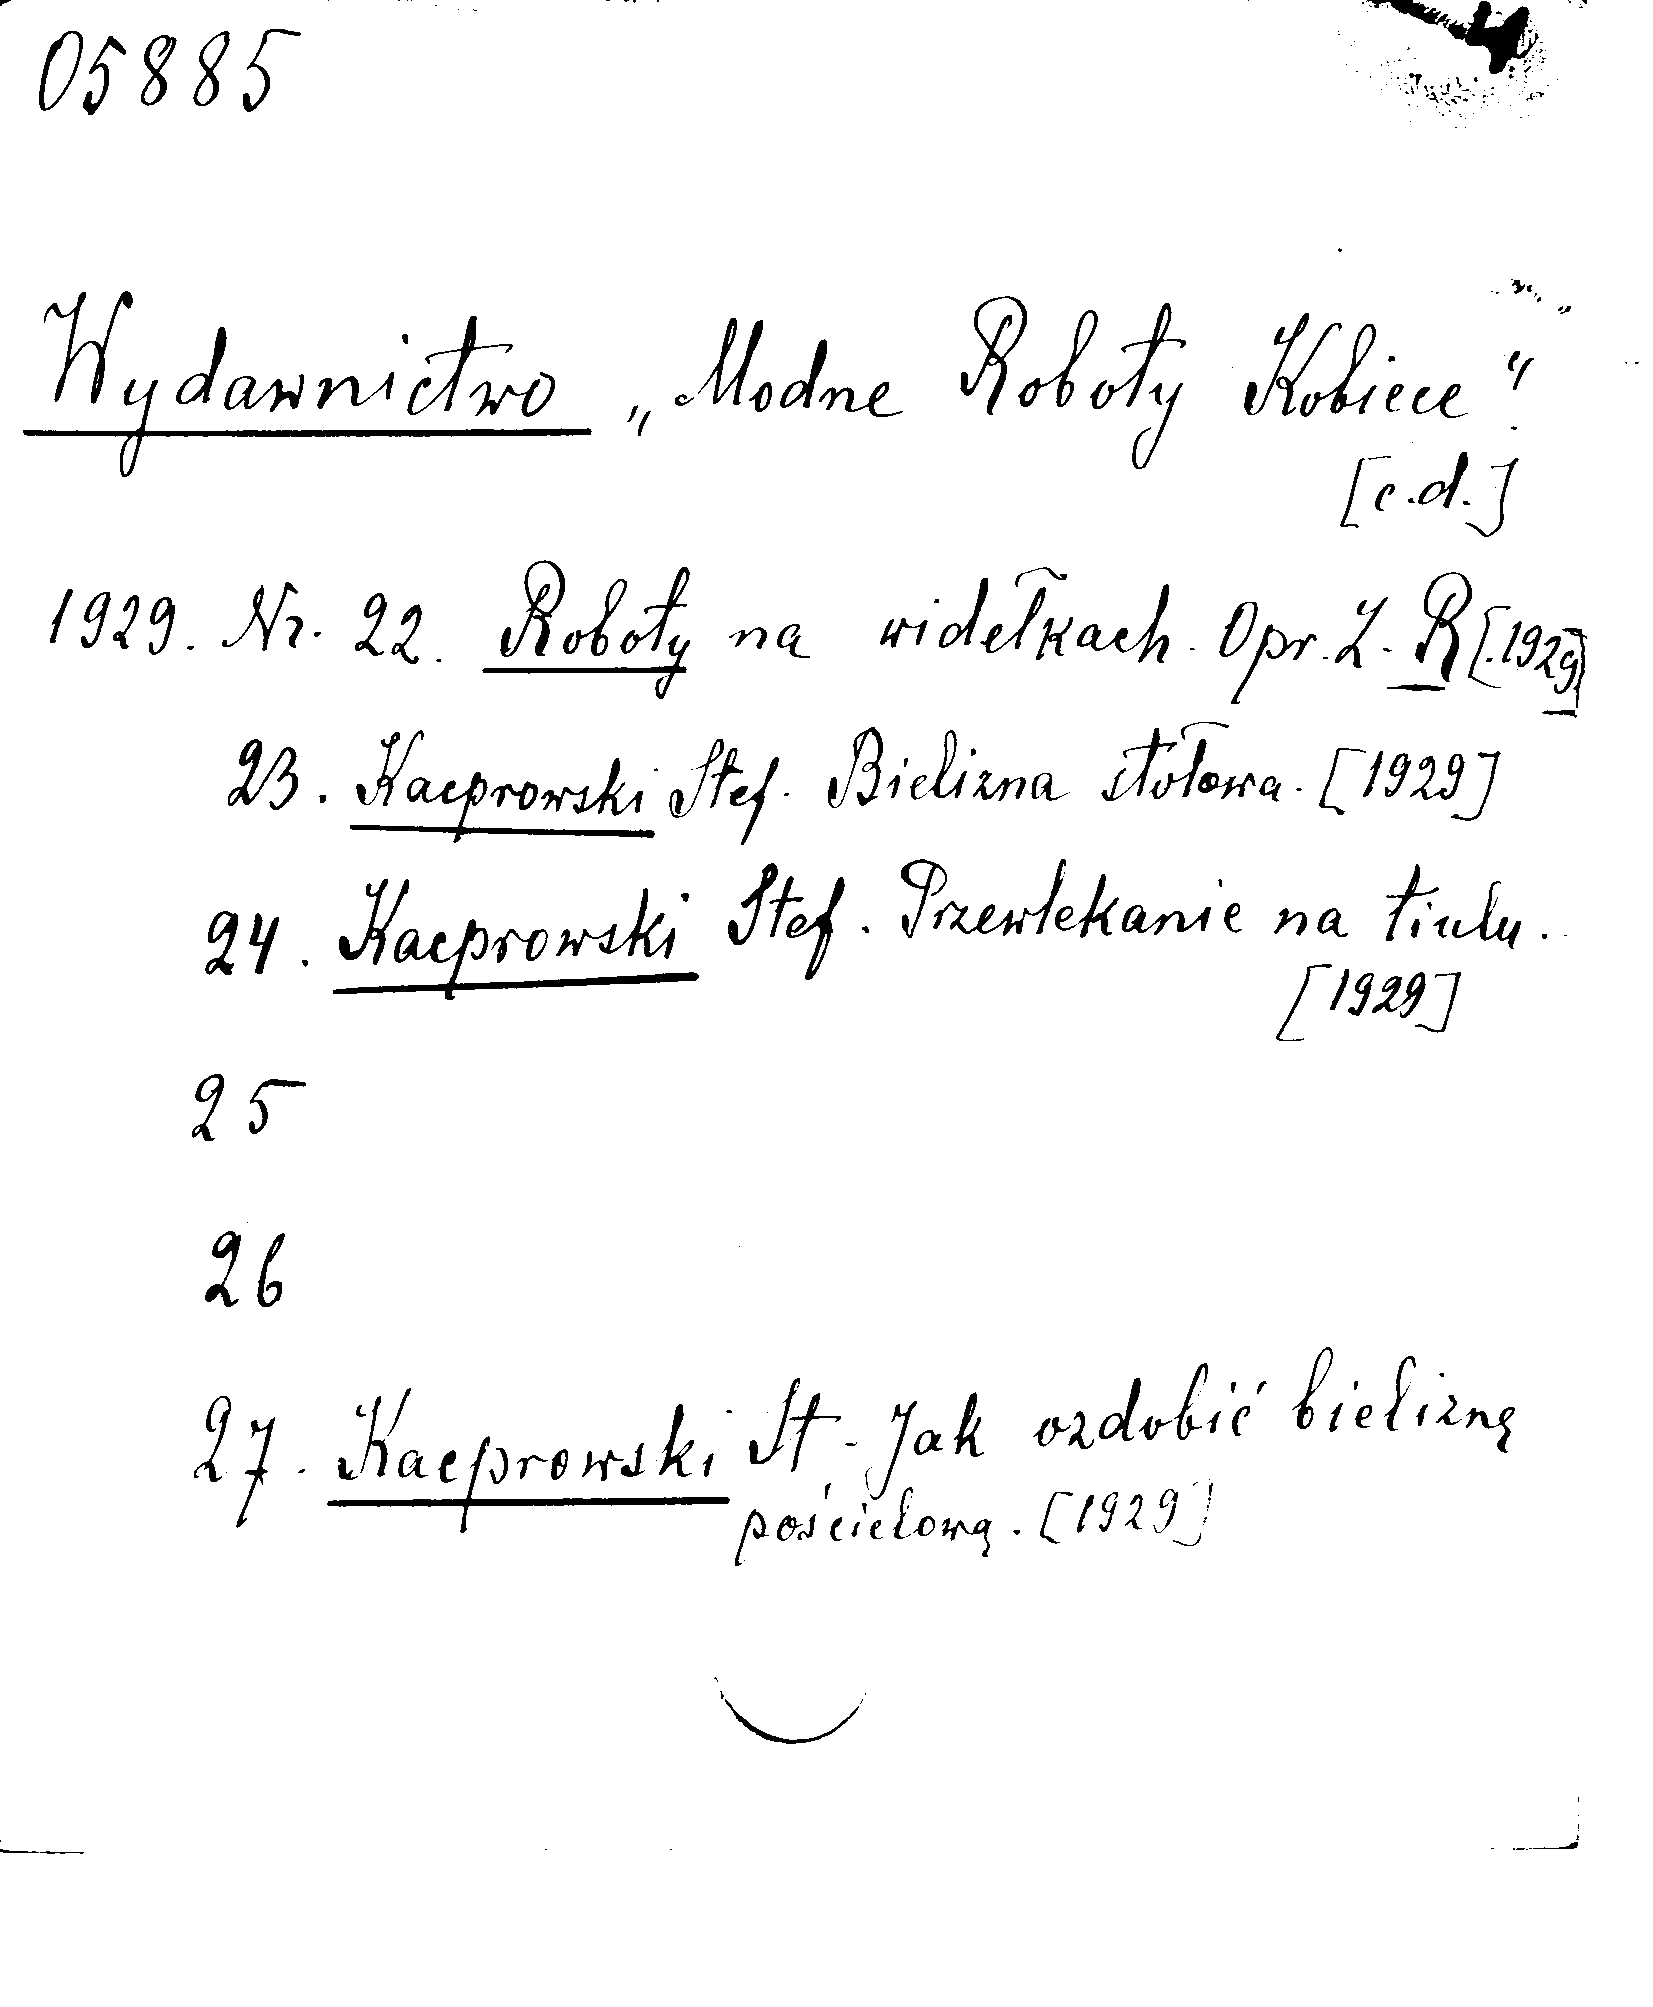 05885
4
Wydawnictwo „Modne Roboty Kobiece".
[c.d.]
1929. Nr. 22. Roboty na widełkach. Opr. Z. R [.1929]
23. Kacprowski Stef. Bielizna stołowa. [1929]
24. Kacprowski Stef. Przewlekanie na tiulu.
[1929]
25
26
27. Kacprowski St. Jak ozdobić bieliznę
pościelową. [1929]